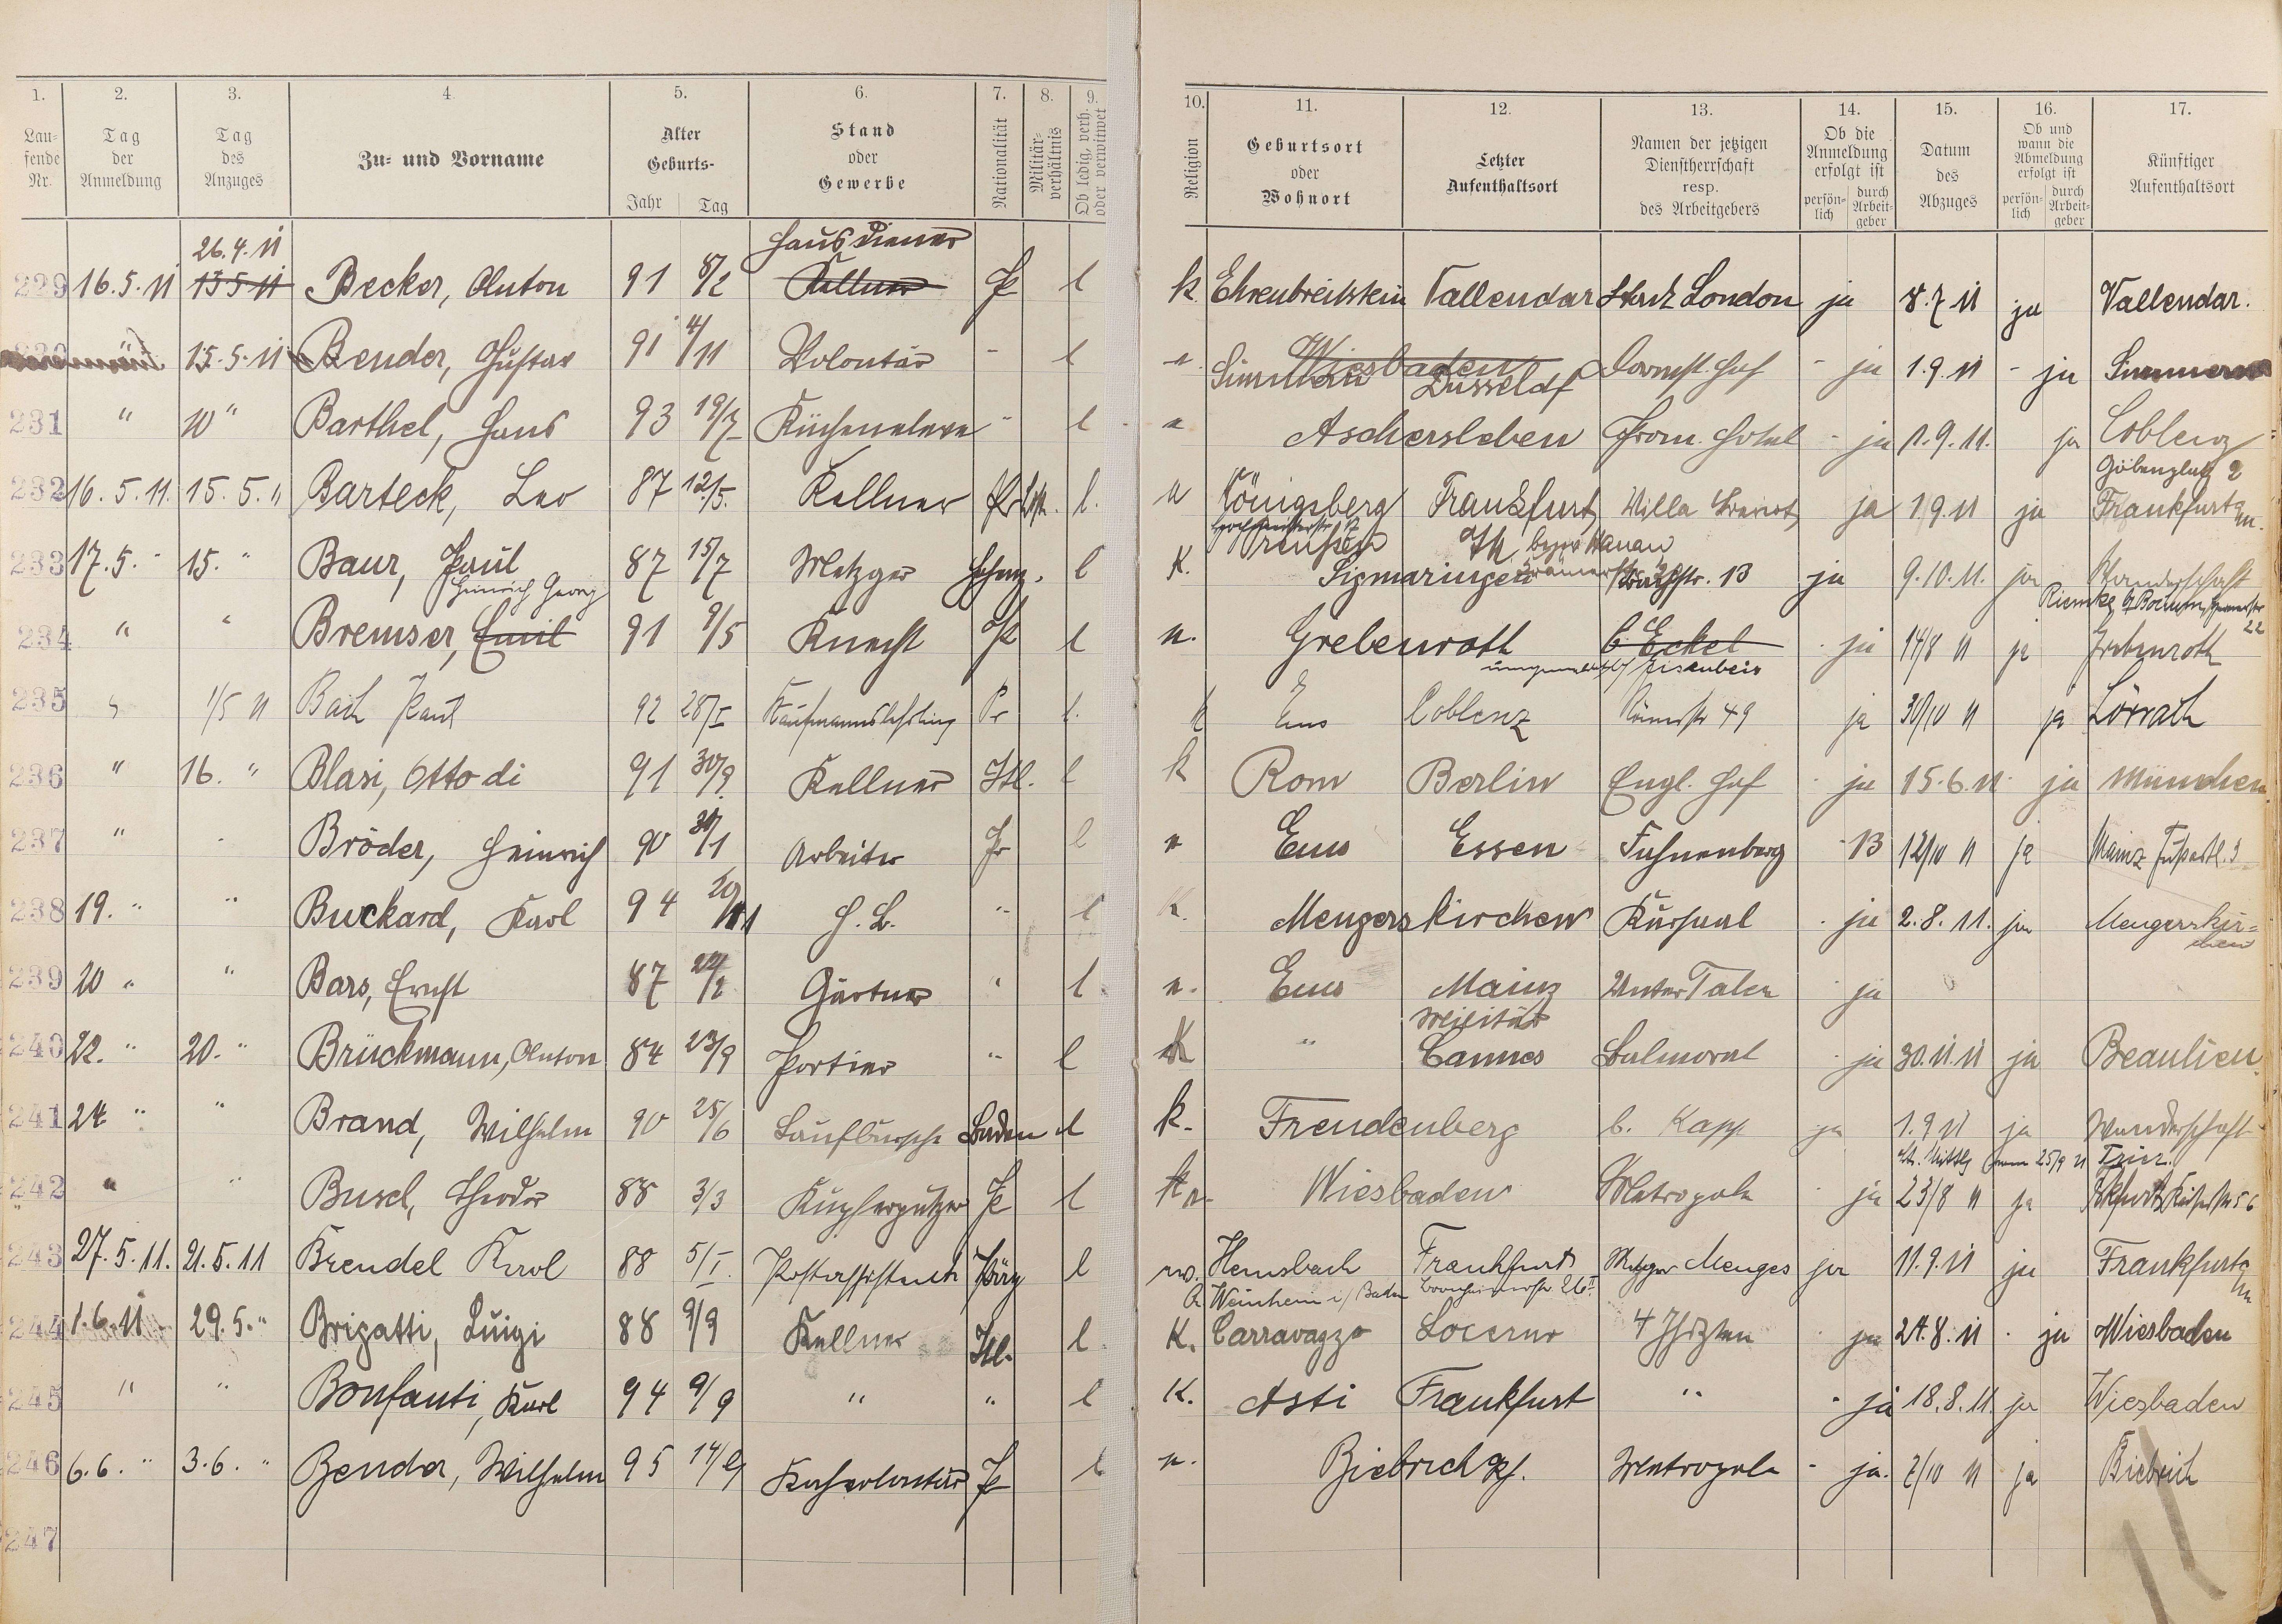 1. 2. 3. 4. 5. 6. 7. 8. 9. 10. 11. 12. 13. 14. 15. 16. 17.
Lau-
fende
Nr.
Tag
der
Anmeldung
Tag
des
Anzuges
Zu- und Vorname
Alter
Geburts-
Jahr Tag
Stand
oder
Gewerbe
Nationalität
Militär-
verhältnis
Ob ledig, verh.
oder verwitwet
Religion
Geburtsort
oder
Wohnort
Letzter
Aufenthaltsort
Namen der jetzigen
Dienstherrschaft
resp.
des Arbeitgebers
Ob die
Anmeldung
erfolgt ist
persön-
lich
durch
Arbeit-
geber
Datum
des
Abzuges
Ob und
wann die
Abmeldung
erfolgt ist
persön-
lich
durch
Arbeit-
geber
Künftiger
Aufenthaltsort
26.4.11 Hausdiener
229 16.5.11 13.5.11 Becker, Anton 91 8/2 Kellner P l k. Ehrenbreitstein Vallendar Stadt London ja 8.7.11 ja Vallendar.
15.5.11 Bender, Gustav 91 4/11 Volontär - l Wiesbaden Darmst. Hof - ja 1.9.11 - ja Simmern
Simmern Düsseldf
231 " 10 " Barthel, Hans 93 19/7 Kücheneleve " l Aschersleben Prom. Hotel - ja 1.9.11. ja Coblenz
Göbenplatz 2
232 16.5.11. 15.5." Barteck, Leo 87 12/5. Kellner l. Königsberg Frankfurt Villa ja 1.9.11 ja Frankfurt a/m.
233 17.5. " 15. " Baur, Paul 87 15/7 Metzger l K. Sigmaringen 13 ja 9.10.11. ja Wanderschaft
Heinrich Georg
234 " " Bremser, Emil 91 9/5 Knecht l n. Grebenroth C. Eckel ja 14/8 11 ja Grebenroth
Eisenbeis
235 1/5 11 Bach Paul 92 28/I Kaufmannslehrling Pr l. k Ems Coblenz Römerstr 49 ja 30/10 11 ja Lörrach
236 " 16. " Blasi, Otto di 91 30/9. Kellner Itl. l k Rom Berlin Engl. Hof - ja 15.6.11 - ja München.
237 " Bröder, Heinrich 90 31/1 Arbeiter Pr l Ems Essen Fuhnenberg 13 12/10 11 ja Mainz
238 19. " " Buckard, Karl 94 H.B. " l K. Mengerskirchen Kursaal . ja 2.8.11. ja Mengerskir=
chen
239 20 " " Bars, Ernst 87 Gärtner " l. Ems Mainz Unter Talen ja
Militär
240 22. " 20. " Brückmann, Anton 84 23/9 Portier " l K " Cannes Balmoral ja 30.11.11 ja Beaulieu.
241 24 " " Brand, Wilhelm 90 25/6 Laufbursche Baden l k. Freudenberg b. Kapp ja 1.9.11 ja Wanderschaft
25/9 11 Trier.
242 " " Busch, Theodor 88 3/3 Kupferputzer P l Wiesbaden Metropole . ja 23/8 11 ja
243 27.5.11. 21.5.11 Brendel Karl 88 5/I. Postassistent l Hemsbach Frankfurt Metzger Menges ja 11.9.11 ja Frankfurt a/m
A Weinheim i/Baden
244 1.6.11 29.5." Brigatti, Luigi 88 9/9 Kellner Itl. l K. Carravaggo Locerno 4 ja 24.8.11 . ja Wiesbaden
245 " " Bonfanti, Karl 94 9/9 " " l K. Asti Frankfurt " - ja 18.8.11. ja Wiesbaden
246 6.6. " 3.6. " Bender, Wilhelm 95 Kochvolontär P l n. Biebrich Rh. Metropole - ja. 7/10 11 ja Biebrich
247